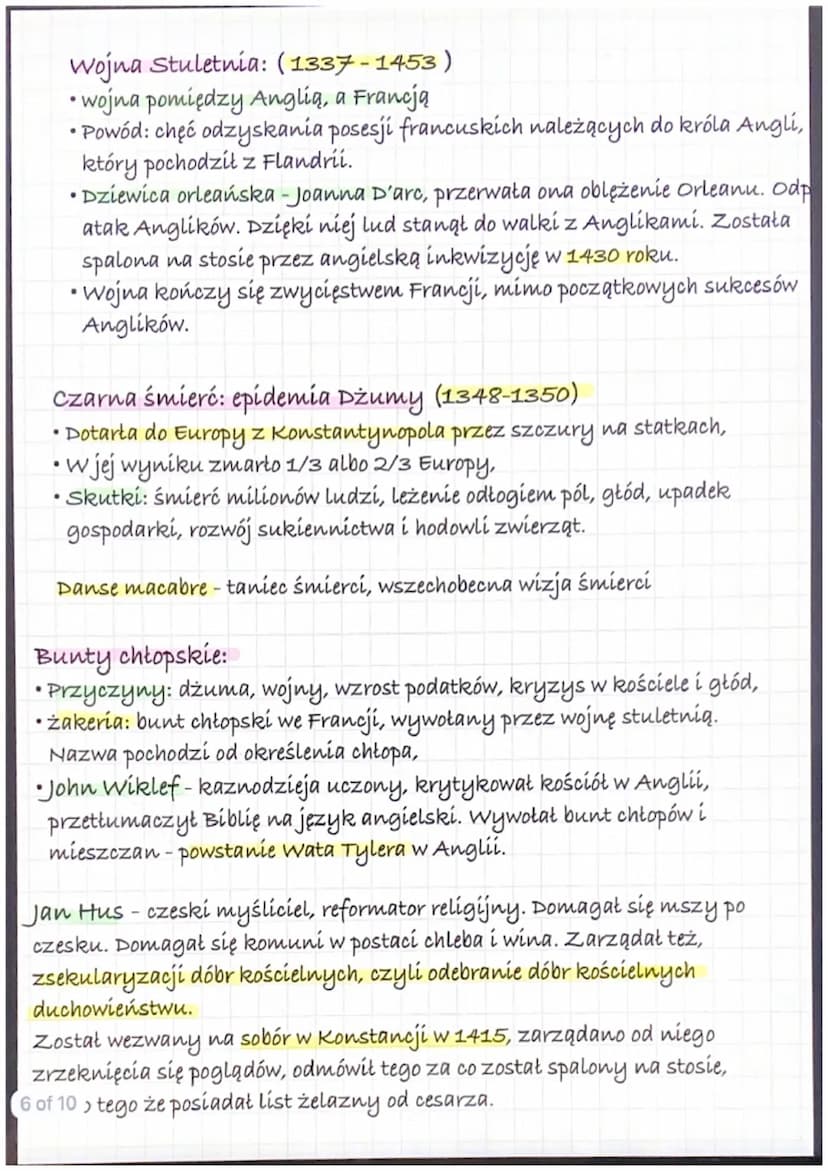 Wojna Stuletnia: (1337 - 1453)
• wojna pomiędzy Anglią, a Francją
• Powód: chęć odzyskania posesji francuskich należących do króla Angli,
który pochodził z Flandrii.
• Dziewica orleańska - Joanna D'arc, przerwała ona oblężenie Orleanu. Odp
atak Anglików. Dzięki niej lud stanął do walki z Anglikami. Została
spalona na stosie przez angielską inkwizycję w 1430 roku.
• Wojna kończy się zwycięstwem Francji, mimo początkowych sukcesów
Anglików.
Czarna śmierć: epidemia Dżumy (1348-1350)
• Dotarła do Europy z Konstantynopola przez szczury na statkach,
• W jej wyniku zmarło 1/3 albo 2/3 Europy,
• Skutki: śmierć milionów ludzi, leżenie odłogiem pól, głód, upadek
gospodarki, rozwój sukiennictwa i hodowli zwierząt.
Danse macabre - taniec śmierci, wszechobecna wizja śmierci
Bunty chłopskie:
• Przyczyny: dżuma, wojny, wzrost podatków, kryzys w kościele i głód,
• żakeria: bunt chłopski we Francji, wywołany przez wojnę stuletnią.
Nazwa pochodzi od określenia chłopa,
• John Wiklef - kaznodzieja uczony, krytykował kościół w Anglii,
przetłumaczył Biblię na język angielski. Wywołał bunt chłopów i
mieszczan - powstanie Wata Tylera w Anglii.
Jan Hus - czeski myśliciel, reformator religijny. Domagał się mszy po
czesku. Domagał się komuni w postaci chleba i wina. Zarządał też,
zsekularyzacji dóbr kościelnych, czyli odebranie dóbr kościelnych
duchowieństwu.
Został wezwany na sobór w Konstancji w 1415, zarządano od niego
zrzeknięcia się poglądów, odmówił tego za co został spalony na stosie,
6 of 10 tego że posiadał list żelazny od cesarza.